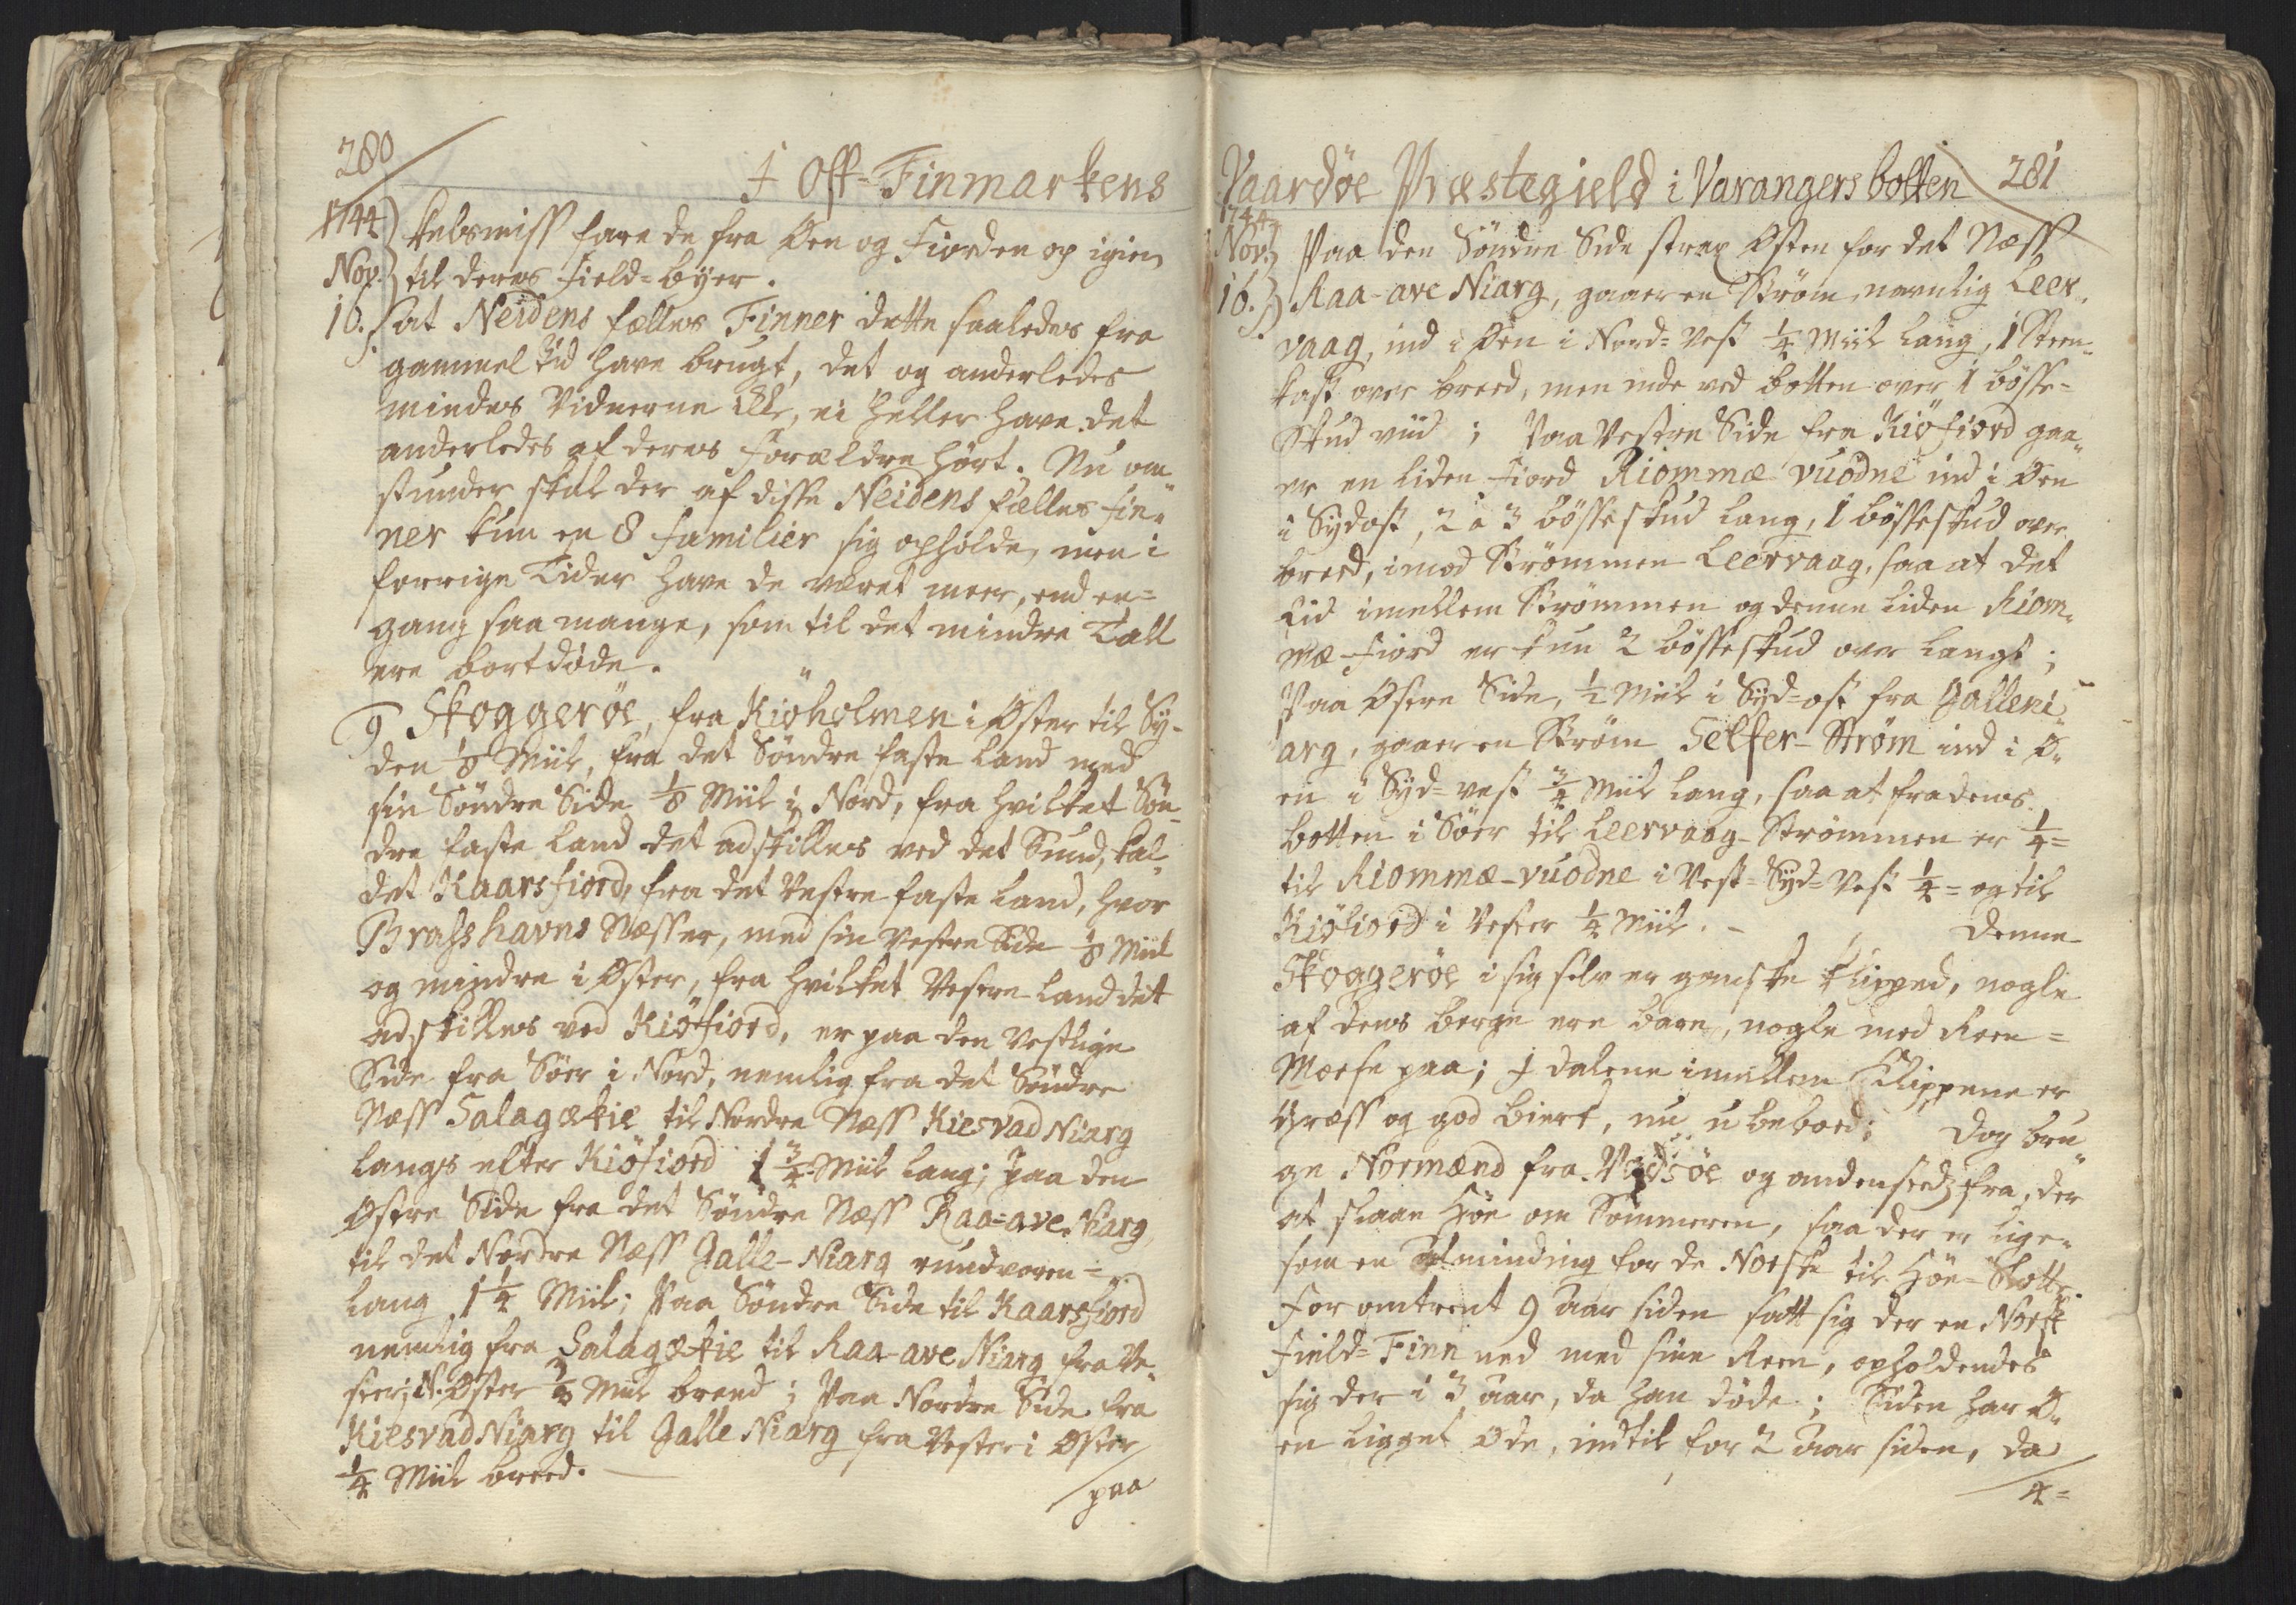 280
I Ost-Finmarkens
1744
Nov.
16.
kelsmiss fare de fra Øen og Fiorden op igien
til deres Field-byer.
at Neidens fælles Finner dette saaledes fra
gammel tid have brugt, det og anderledes
mindes Vidnerne ikke, ei heller have det
anderledes af deres Forældre hørt. Nu om„
stunder skal der af disse Neidens fælles Fin„
ner kun en 8 familier sig opholde, men i
forrige Tider have de været meer, end en=
gang saa mange, som til det mindre Tall
ere bortdøde.
9 Skoggerøe, fra Kiøholmen i Øster til Sy-
den 1/8 Miil, fra det Søndre faste Land med
sin Søndre Side 1/8 Miil i Nord, fra hvilket Søn„
dre faste Land det adskilles ved det Sund, kal„
det Kaarsfiord, fra det Vestre faste Land, hvor
Brasshavns Næss er, med sin Vestre Side 1/8 Miil
og mindre i Øster, fra hvilket Vestre Land det
adskilles ved Kiøfiord, er paa den Vestlige
Side fra Sør i Nord, nemlig fra det Søndre
Næss Salagækie til Nordre Næss Kiesvad Niarg
langs efter Kiøfiord 1 3/4 Miil lang; Paa den
Østre Side fra det Søndre Næss Raa-ave Niarg
til det Nordre Næss Jalle-Niarg rundvoren=
lang 1 1/4 Miil; Paa Søndre Side til Kaarsfiord
nemlig fra Salagækie til Raa-ave Niarg fra Ve„
ster i N. Øster 3/4 Miil breed; Paa Nordre Side fra
Kiesvad Niarg til Jalle Niarg fra Vester i Øster
1/4 Miil breed.
paa
Vaardøe Præstegield i Varangersbotten
281
1744
Nov.
16.
Paa den Søndre Side strax Østen for det Næss
Raa-ave Niarg, gaaer en Strøm, navnlig Leer„
vaag, ind i Øen i Nord-Vest 1/4 Miil lang, 1 Steen„
kast over breed, men inde ved botten over 1 bøsse=
skud viid; Paa Vestre Side fra Kiøfiord gaa„
er en liden Fiord Riommæ vuodne ind i Øen
i Sydost, 2 à 3 bøsseskud lang, 1 bøsseskud over
breed, imod Strømmen Leervaag, saa at det
Eid imellem Strømmen og denne liden Riom„
mæ-Fiord er kun 2 bøsseskud over langt;
Paa Østre Side, 1/2 Miil i Syd-ost fra Jalleni„
arg, gaaer en Strøm Selfer-Strøm ind i Ø„
en i Syd-vest 3/4 Miil lang, saa at fra dens
botten i Søer til Leervaag-Strømmen er 1/4=
til Riommæ-vuodne i Vest-Syd-Vest 1/4= og til
Kiøfiord i Vester 1/4 Miil. - Denne
Skoggerøe i sig selv er ganske klipped, nogle
af dens berge ere bare, nogle med Reen=
Maase paa; I dalene imellem Klippene er
Græss og god biert, nu ubeboed; Dog bru„
ge Normænd fra Vadsøe og andensteds fra, der
at slaae Høe om Sommeren, saa der er lige„
som en Alminding for de Norske til Høe-Slotte.
For omtrent 9 Aar siden satt sig der en Norsk
Field-Finn ned med sine Reen, opholdendes
sig der i 3 aar, da han døde; Siden har Ø„
en ligget Øde, indtil for 2 aar siden, da
4=